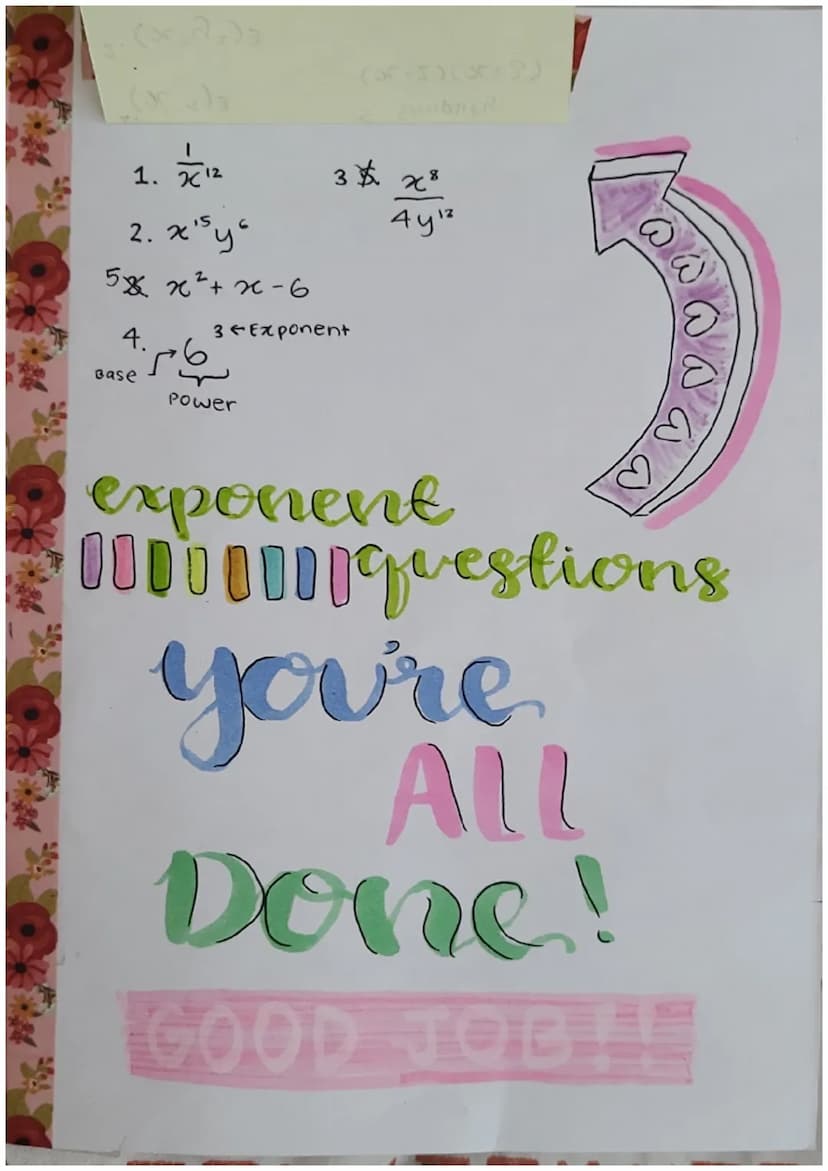 1. 1/x¹²
3 x⁸/4y¹²
2. x¹⁵y⁶
5 x² + x - 6
4. 6 3 ← Exponent
Base
Power
exponent
questions
you're
ALL
Done!
GOOD JOB!!